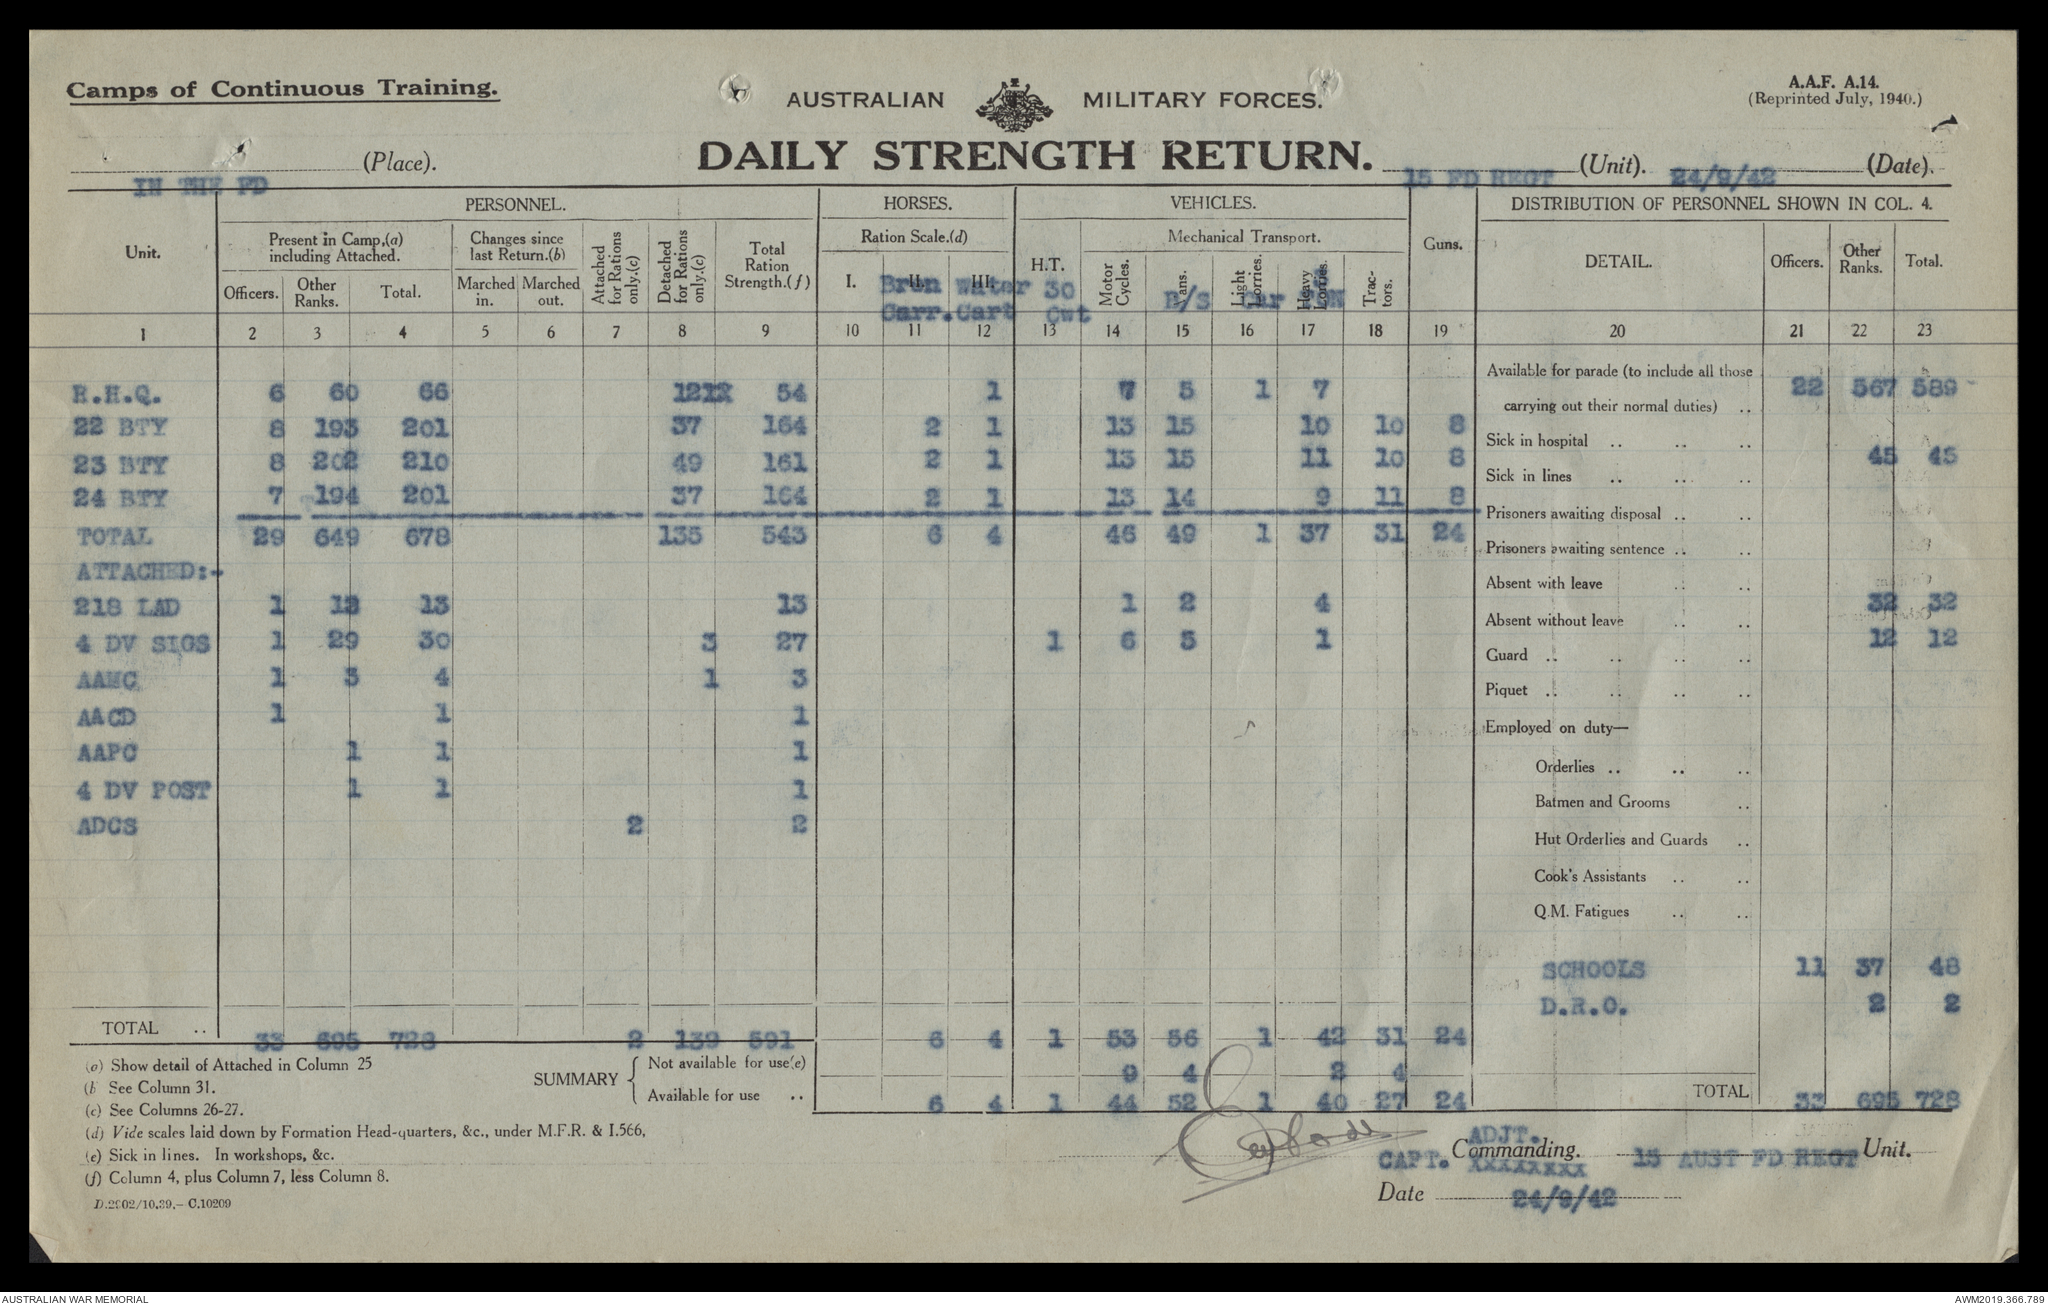 Camps of Continuous Training.
AUSTRALIAN MILITARY FORCES.
A.A.F. A.14.
(Reprinted July, 1940.)
(Place). DAILY STRENGTH RETURN. 15 FD REGT (Unit). 24/9/42 (Date).
IN THE FD
Unit. PERSONNEL. HORSES. VEHICLES. Guns. DISTRIBUTION OF PERSONNEL SHOWN IN COL. 4.
Present in Camp,(a) including Attached. Changes since last Return.(b) Attached for Rations only.(c) Detached for Rations only.(c) Total Ration Strength.(f) Ration Scale.(d) H.T. Mechanical Transport. DETAIL. Officers. Other Ranks. Total.
Officers. Other Ranks. Total. Marched in. Marched out. I. II. III. Motor Cycles. Vans. Light Lorries. Heavy Lorries. Tractors.
Bren Water 30 B/S Car
Carr. Cart Cwt
1 2 3 4 5 6 7 8 9 10 11 12 13 14 15 16 17 18 19 20 21 22 23
R.H.Q. 6 60 66 12 54 1 7 5 1 7
22 BTY 8 193 201 37 164 2 1 13 15 10 10 8
23 BTY 8 202 210 49 161 2 1 13 15 11 10 8
24 BTY 7 194 201 37 164 2 1 13 14 9 11 8
TOTAL 29 649 678 135 543 6 4 46 49 1 37 31 24
ATTACHED:-
218 LAD 1 12 13 13 1 2 4
4 DV SIGS 1 29 30 3 27 1 6 5 1
AAMC 1 3 4 1 3
AACD 1 1 1
AAPC 1 1 1
4 DV POST 1 1 1
ADCS 2 2
TOTAL .. 33 695 728 2 139 591 6 4 1 53 56 1 42 31 24
Available for parade (to include all those
carrying out their normal duties) .. 22 567 589
Sick in hospital .. .. .. 45 45
Sick in lines .. .. ..
Prisoners awaiting disposal .. ..
Prisoners awaiting sentence .. ..
Absent with leave .. .. 32 32
Absent without leave .. .. 12 12
Guard .. .. .. ..
Piquet .. .. .. ..
Employed on duty—
Orderlies .. .. ..
Batmen and Grooms ..
Hut Orderlies and Guards ..
Cook's Assistants .. ..
Q.M. Fatigues .. ..
SCHOOLS 11 37 48
D.R.O. 2 2
TOTAL 33 695 728
SUMMARY
Not available for use(e) 9 4 2 4
Available for use .. 6 4 1 44 52 1 40 27 24
(a) Show detail of Attached in Column 25
(b See Column 31.
(c) See Columns 26-27.
(d) Vide scales laid down by Formation Head-quarters, &c., under M.F.R. & I.566,
(e) Sick in lines. In workshops, &c.
(f) Column 4, plus Column 7, less Column 8.
D.2902/10.39.— C.10209
ADJT.
CAPT. Commanding. 15 AUST FD REGT Unit.
xxxxxxxx
Date 24/9/42
AUSTRALIAN WAR MEMORIAL
AWM2019.366.789